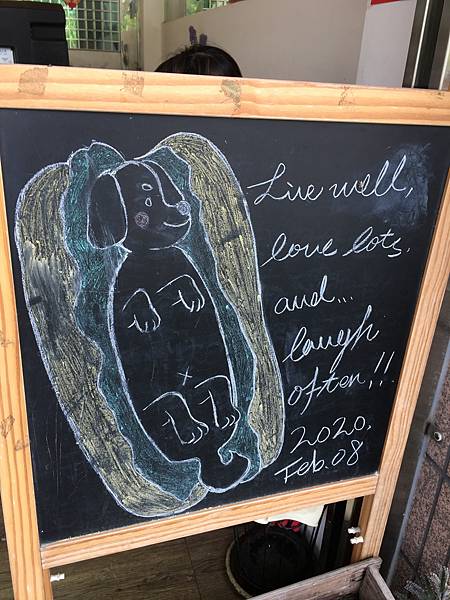 Live well,
love lots,
and...
laugh
often,!!
2020,
Feb. 08